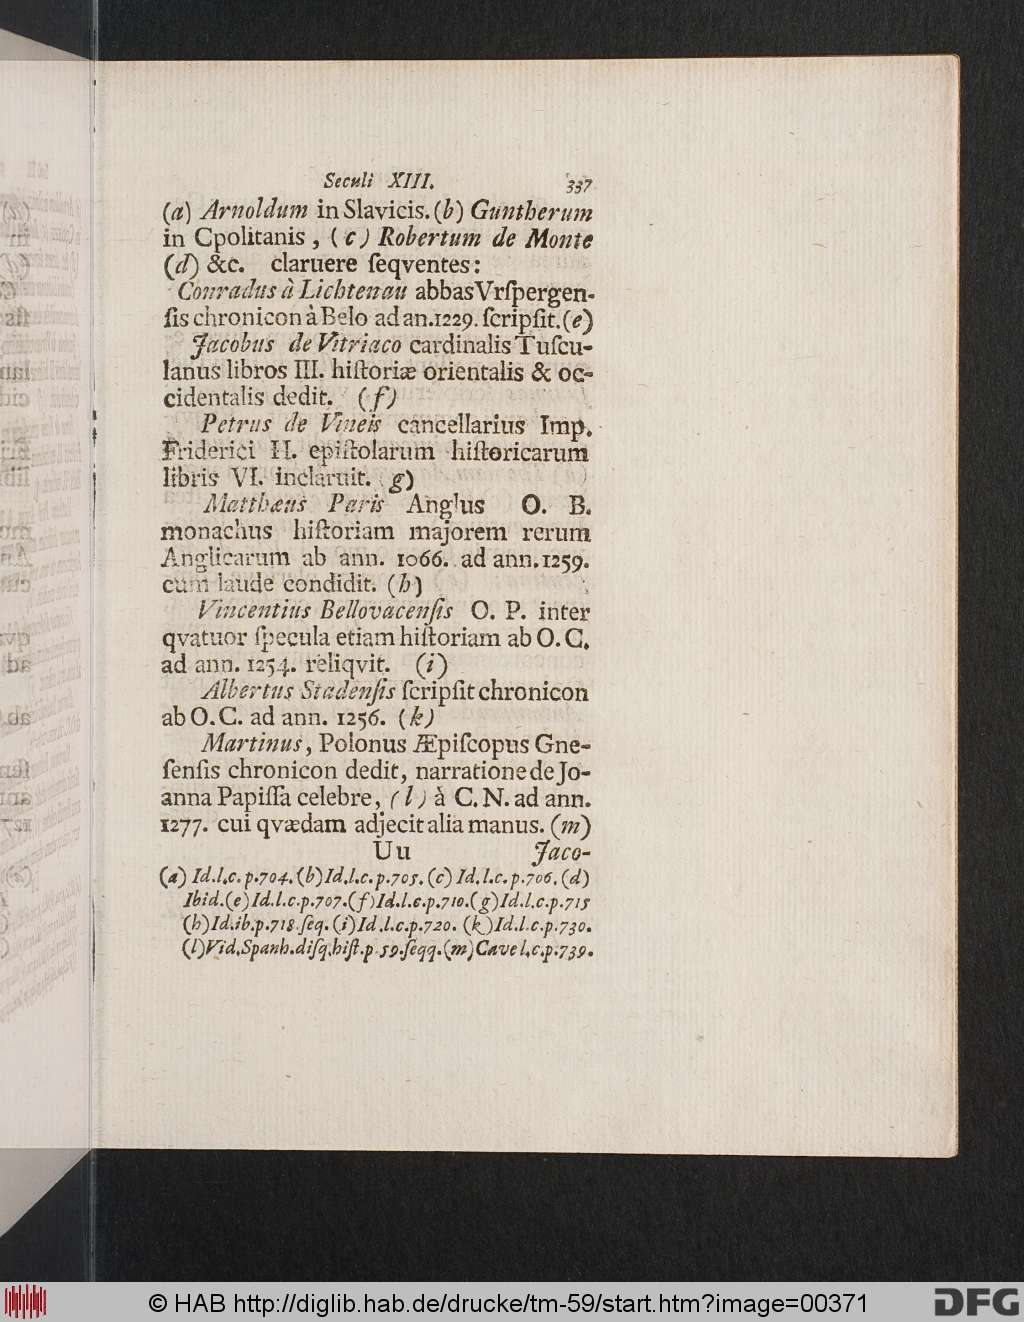 Seculi XIII. 337
(a) Arnoldum in Slavicis. (b) Guntherum
in Cpolitanis, (c) Robertum de Monte
(d) &c. claruere ſeqventes:
Conradus à Lichtenau abbas Vrſpergen-
ſis chronicon à Belo ad an. 1229. ſcripſit. (e)
Jacobus de Vitriaco cardinalis Tuſcu-
lanus libros III. hiſtoriæ orientalis & oc-
cidentalis dedit. (f)
Petrus de Vineis cancellarius Imp.
Friderici II. epiſtolarum hiſtoricarum
libris VI. inclaruit. g)
Matthæus Paris Anglus O. B.
monachus hiſtoriam majorem rerum
Anglicarum ab ann. 1066. ad ann. 1259.
cum laude condidit. (h)
Vincentius Bellovacenſis O. P. inter
qvatuor ſpecula etiam hiſtoriam ab O. C.
ad ann. 1254. reliqvit. (i)
Albertus Stadenſis ſcripſit chronicon
ab O. C. ad ann. 1256. (k)
Martinus, Polonus Æpiſcopus Gne-
ſenſis chronicon dedit, narratione de Jo-
anna Papiſſa celebre, (l) à C. N. ad ann.
1277. cui qvædam adjecit alia manus. (m)
Uu Jaco-
(a) Id. l. c. p. 704. (b) Id. l. c. p. 705. (c) Id. l. c. p. 706. (d)
Ibid. (e) Id. l. c. p. 707. (f) Id. l. c. p. 710. (g) Id. l. c. p. 715
(h) Id. ib. p. 718. ſeq. (i) Id. l. c. p. 720. (k) Id. l. c. p. 730.
(l) Vid. Spanh. diſq. hiſt. p. 59. ſeqq. (m) Cave l. c. p. 739.
© HAB http://diglib.hab.de/drucke/tm-59/start.htm?image=00371
DFG